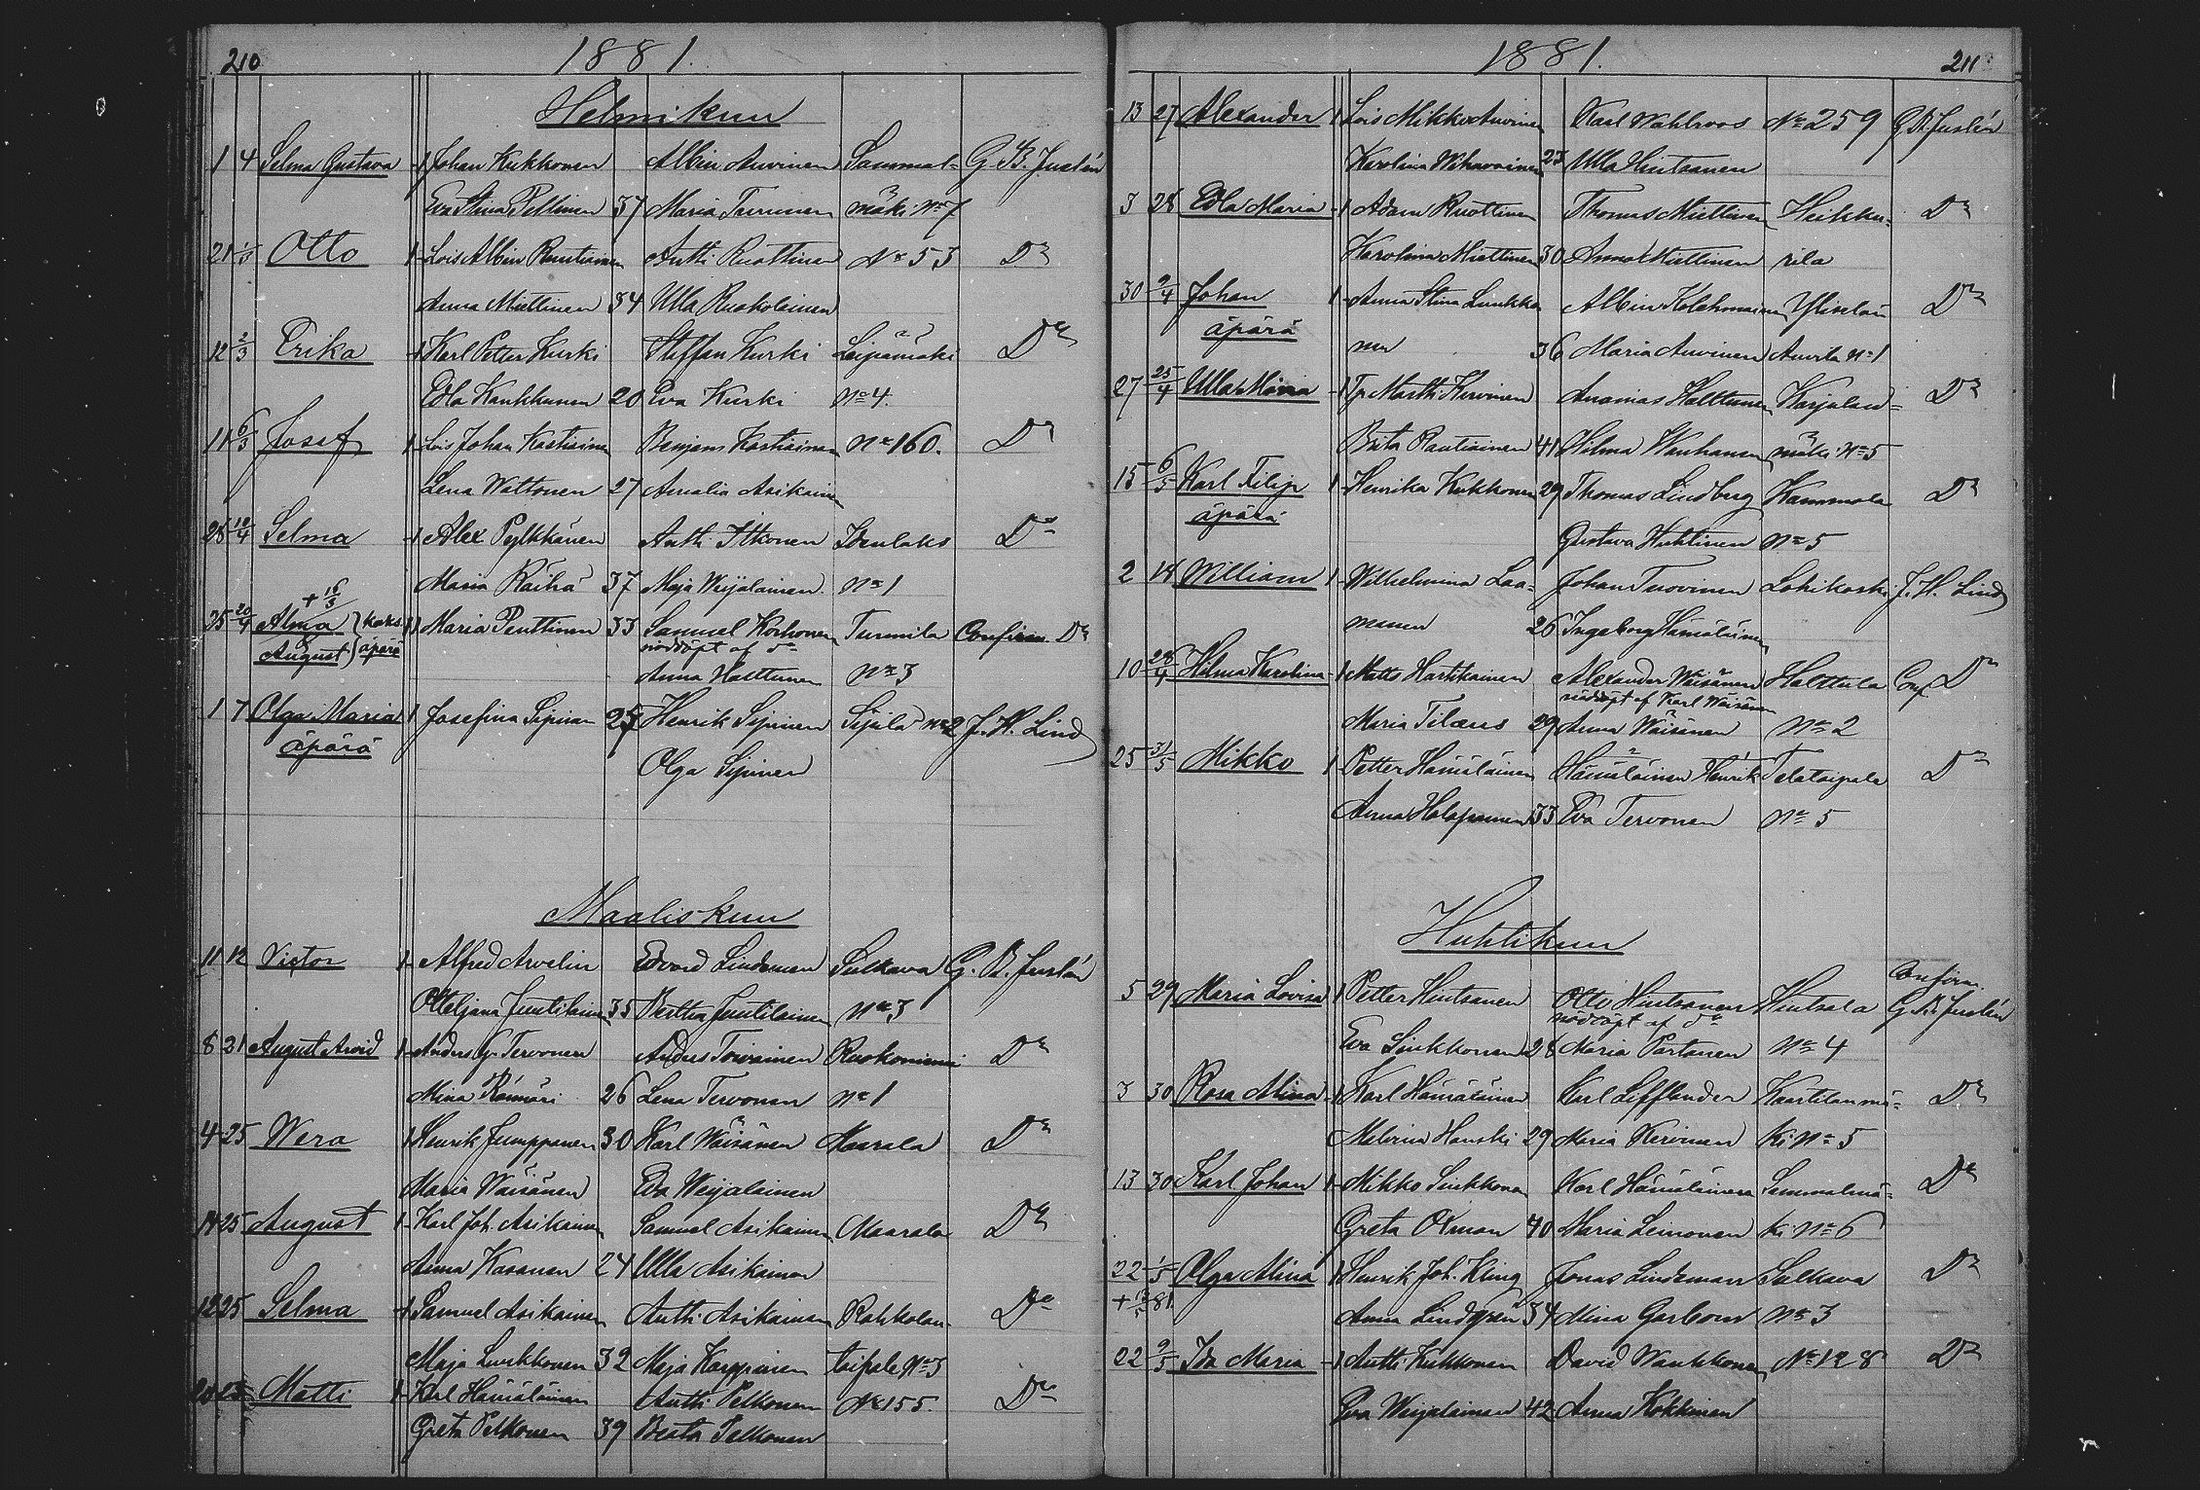 210
1881.
Helmikuu
1 4 Selma Gustava 1 Johan Kukkonen Albin Auvinen Sammal- G. B. Juslén
Eva Stina Pellinen 37 Maria Turunen mäki No 7
21 1/3 Otto 1 Lois Albin Rautiainen Antti Ruottinen No 53 Do
Anna Miettinen 34 Ulla Ruokolainen
12 2/3 Erika 1 Karl Petter Kurki Steffan Kurki Leipämäki Do
Edla Kaukkunen 20 Eva Kurki No 4.
11 6/3 Josef 1 Lois Johan Kostiainen Benjam Kostiainen No 160. Do
Lena Waltonen 27 Amalia Asikainen
28 10/4 Selma 1 Alex Pylkkänen Antti Itkonen Idenlaks Do
Maria Räihä 37 Maja Weijalainen No 1
+ 16/3
25 20/4 Alma kaks. Maria Penttinen 33 Samuel Korhonen Turmila Confirm. Do
nöddöpt af do
August äpärä Anna Halttunen No 3
1 7 Olga Maria 1 Josefina Sipinen 25 Henrik Sipinen Sipilä No 2 J. H. Lind
äpärä
Olga Sipinen
Maaliskuu
11 12 Victor 1 Alfred Arvelin Edvard Lindeman Sulkava G. B. Juslén
Ottiljana Juutilainen 35 Bertha Juutilainen No 3
8 21 August Arvid 1 Anders G. Tervonen Anders Toivainen Ruokoniemi Do
Mina Rönnäri 26 Lena Tervonen No 1
4 25 Wera 1 Henrik Jumppanen 30 Karl Wäisänen Maarala Do
Maria Wäisänen Eva Weijalainen
14 25 August 1 Karl Joh. Asikainen Samuel Asikainen Maarala Do
Anna Kasanen 24 Ulla Asikainen
12 25 Selma 1 Samuel Asikainen Antti Asikainen Rahkolan- Do
Maja Luukkonen 32 Maja Karppinen taipale No 3
Matti 1 Karl Hämäläinen Antti Pelkonen No 155. Do
Greta Pelkonen 39 Beata Pelkonen
1881.
211
13 27 Alexander 1 Lois Mikko Auvinen Karl Wahlroos No 259 G. B. Juslén
Karolina Wihavainen 23 Ulla Hintsanen
3 28 Edla Maria 1 Adam Ruottinen Thomas Miettinen Heikku- Do
Karolina Miettinen 30 Anna Miettinen rila
30 9/4 Johan 1 Anna Stina Luukko Albin Kolehmainen Yliselän Do
äpärä
nen 36 Maria Auvinen Auvila No 1
27 25/4 Ulla Maria 1 Tp Martti Kervinen Ananias Halttunen Karjalan- Do
Brita Rautiainen 41 Hilma Wauhanen mäki No 5
15 6/5 Karl Filip 1 Henrika Kukkonen 29 Thomas Lindberg Kammola Do
äpärä
Gustava Huhtinen No 5
2 14 William 1 Wilhelmina Laa- Johan Tuovinen Lohikoski J. H. Lind
manen 26 Ingeborg Hämäläinen
10 28/4 Hilma Karolina 1 Matts Hartikainen Alexander Wäisänen Halttula Conf Do
nöddöpt af Karl Wäisänen
Maria Tilæus 29 Anna Wäisänen No 2
25 31/5 Mikko 1 Petter Hämäläinen Hämäläinen Henrik Telataipale Do
Anna Holopainen 33 Eva Tervonen No 5
Huhtikuu
Confirm.
5 29 Maria Lovisa 1 Petter Hintsanen Otto Hintsanen Hintsala G. B. Juslén
nöddöpt af do
Eva Sinkkonen 28 Maria Partanen No 4
3 30 Rosa Miina 1 Karl Hämäläinen Karl Lefflander Kaartilanmä- Do
Malvina Hanski 29 Maria Kervinen ki No 5
13 30 Karl Johan 1 Mikko Sinkkonen Karl Hämäläinen Sammalmä- Do
Greta Oxman 40 Maria Leinonen ki No 6
22 1/5 Olga Miina 1 Henrik Joh. Kling Jonas Lindeman Sulkava Do
Anna Lindgren 34 Mina Garlow No 3
22 9/5 Ida Maria 1 Antti Kukkonen David Waukkonen No 128 Do
Eva Weijalainen 42 Anna Kokkonen